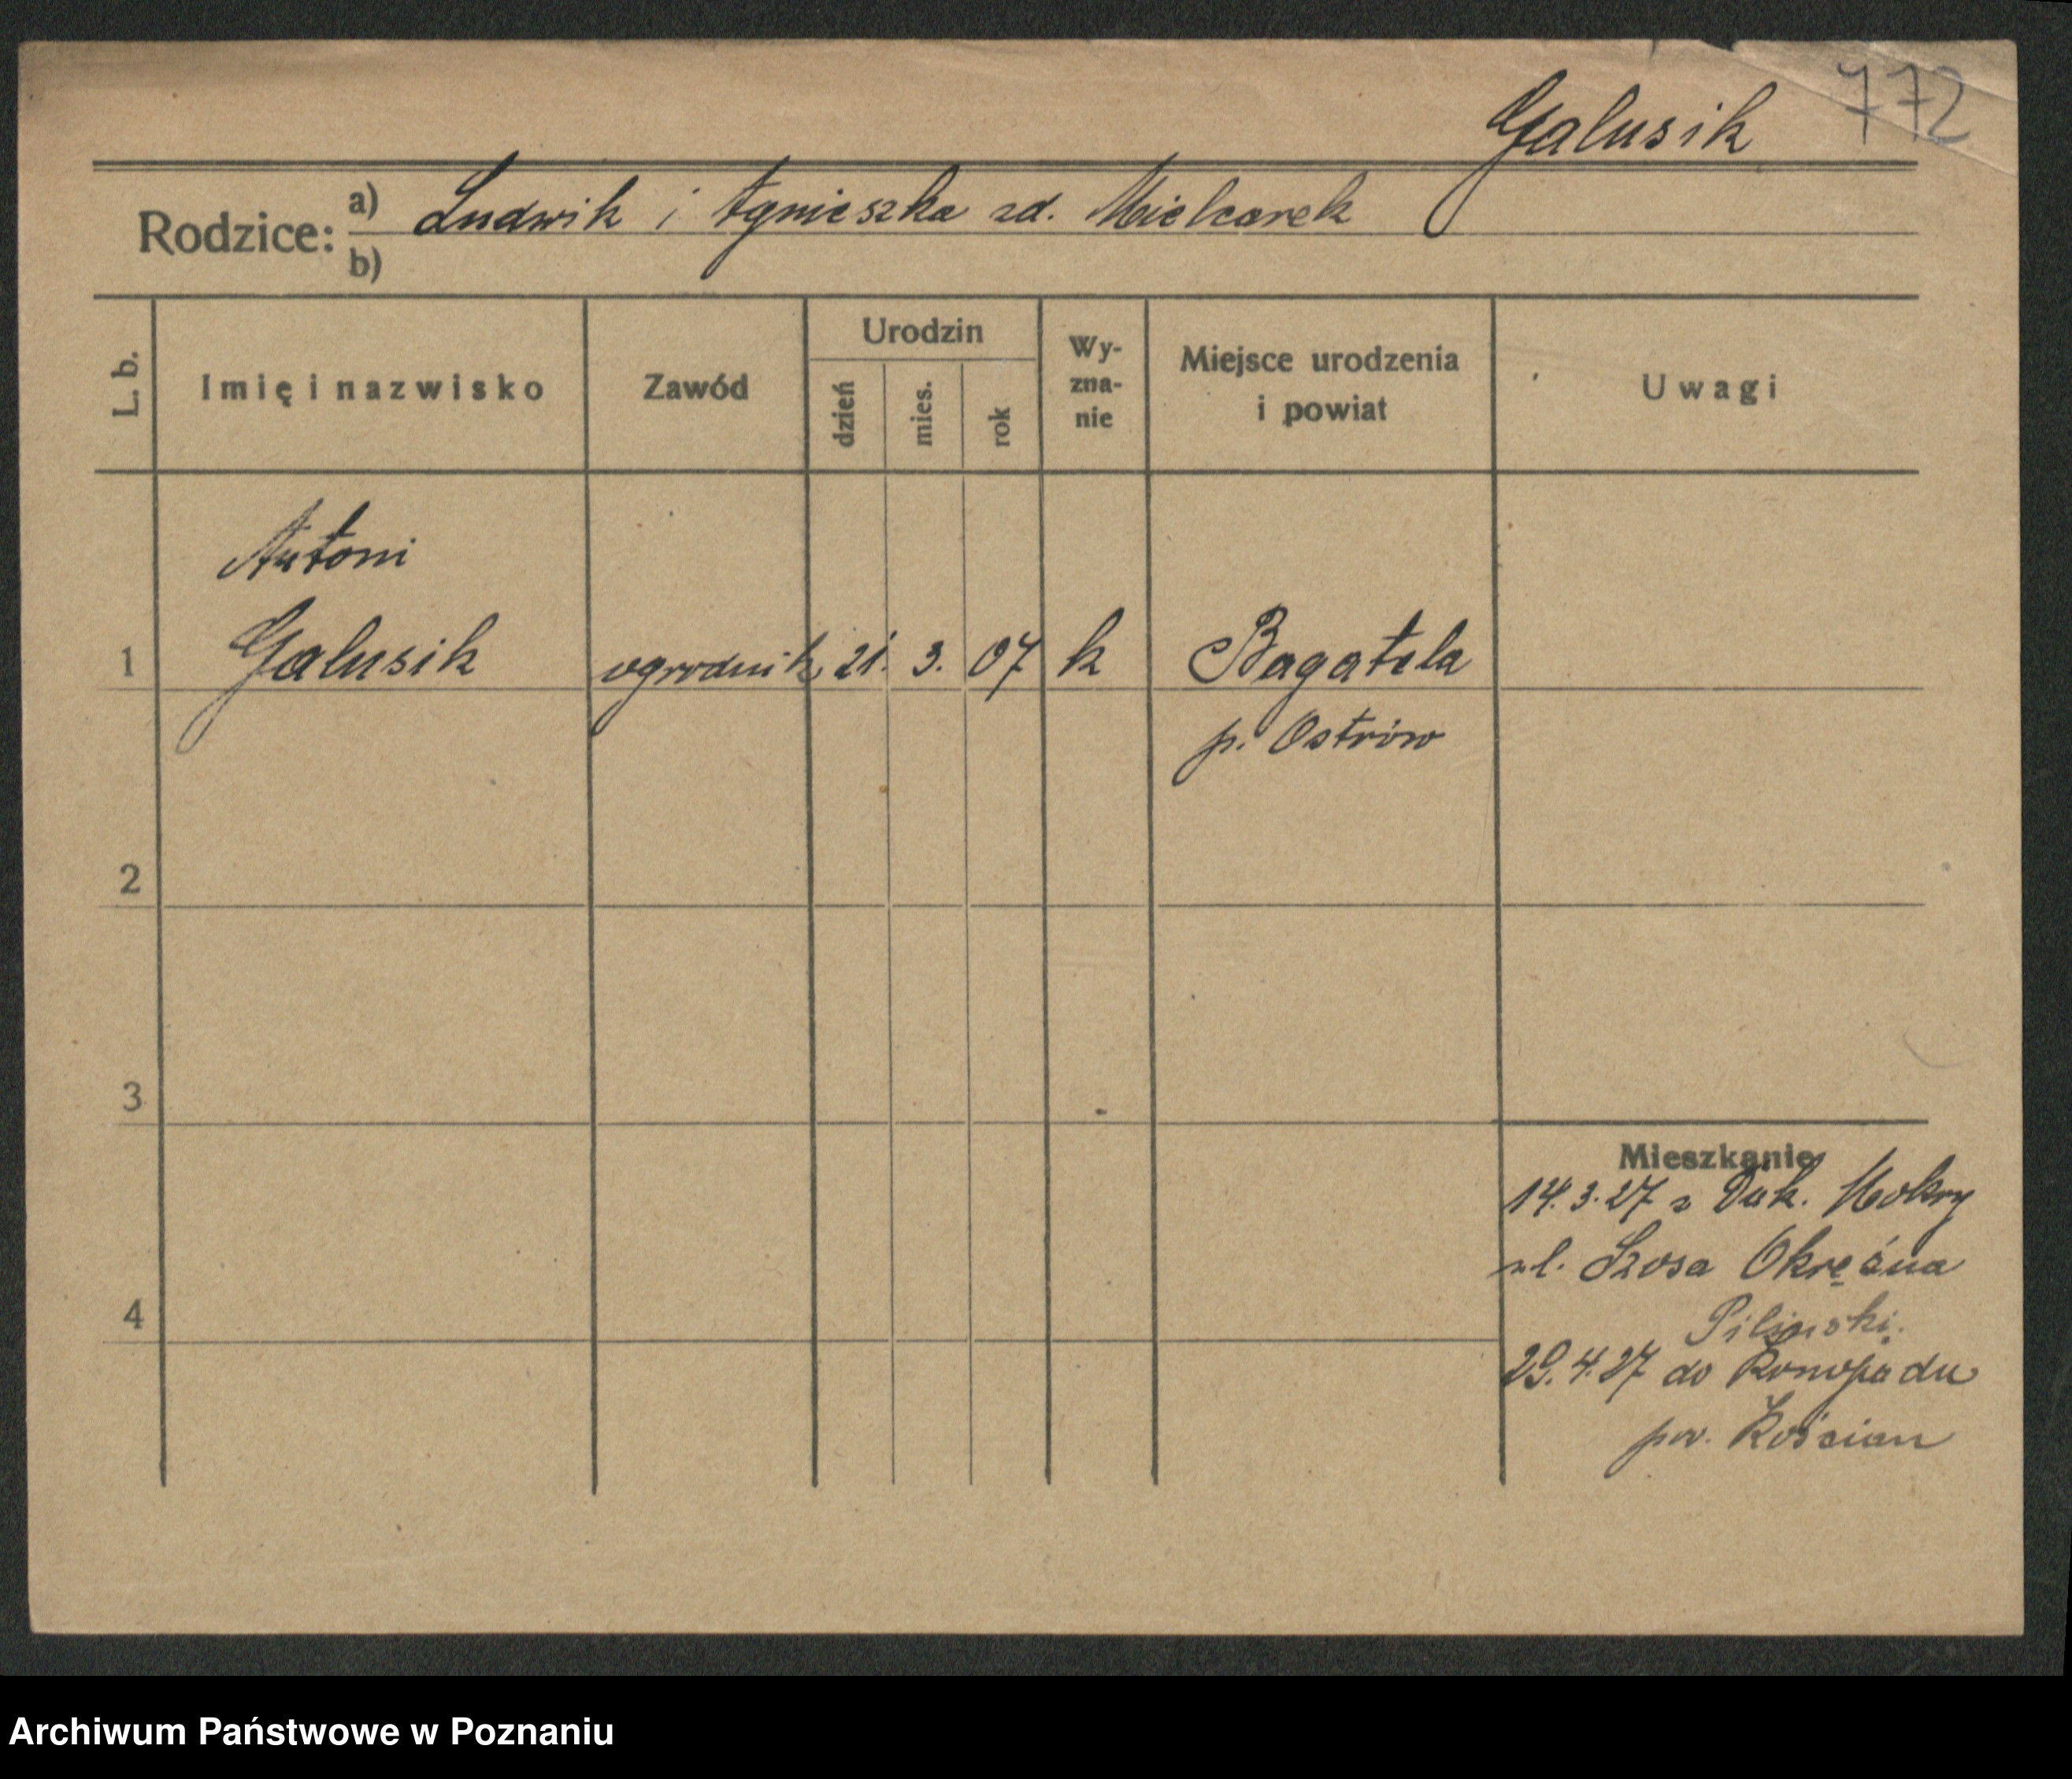 Galusik 772
Rodzice: a) Ludwik i Agnieszka zd. Mielcarek
b)
L. b.
Imię i nazwisko
Zawód
Urodzin
dzień
mies.
rok
Wy-
zna-
nie
Miejsce urodzenia
i powiat
Uwagi
Antoni
1 Galusik ogrodnik 21. 3. 07 k Bagatela
p. Ostrów
2
3
4
Mieszkanie
14.3.27 z Dąb. Mokry
ul. Szosa Okrężna
Piliński.
29.4.27 do Konopadu
pow. Kościan
Archiwum Państwowe w Poznaniu